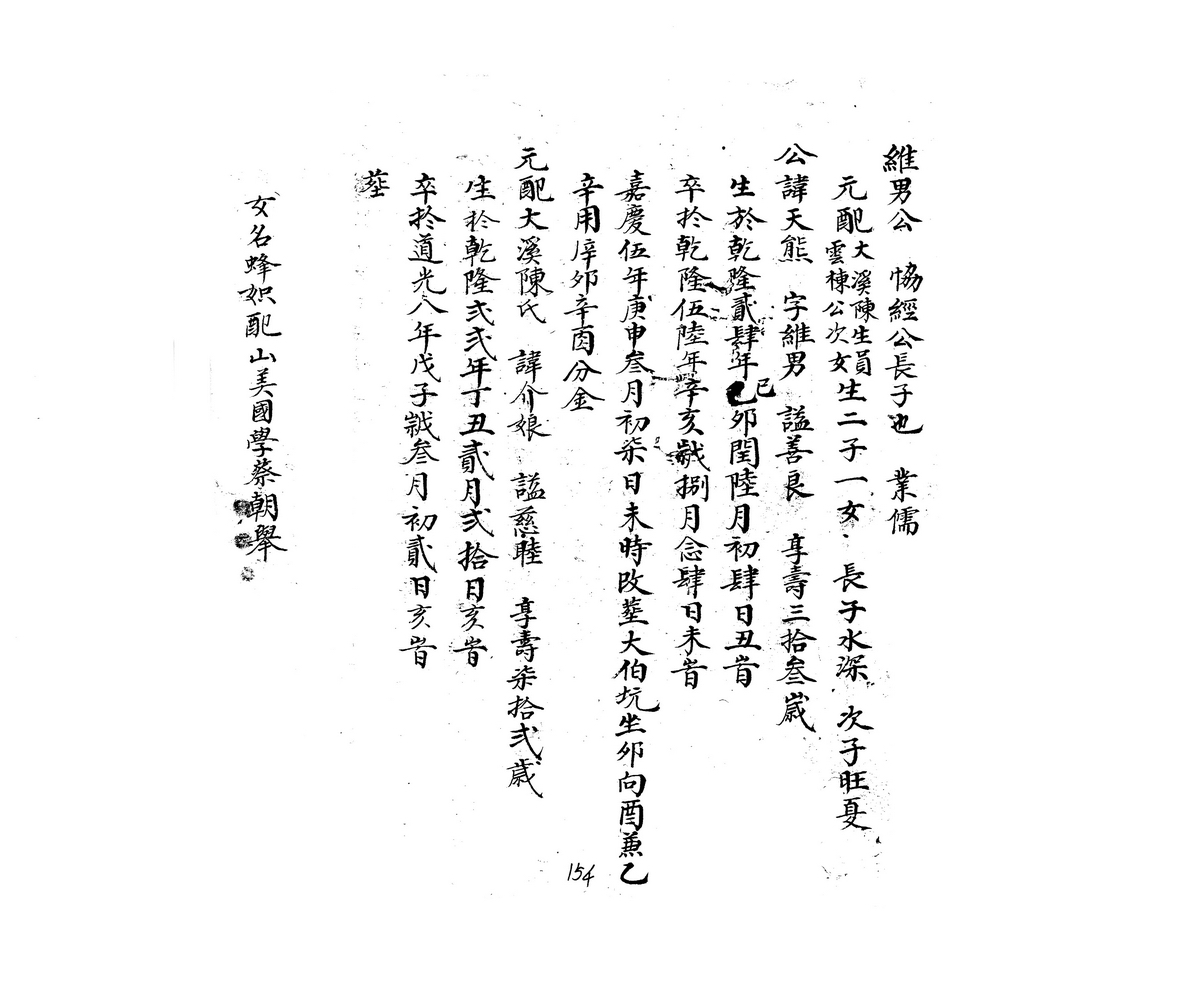 維男公　恊經公長子也　業儒
元配大溪陳生員雲棟公次女生二子一女　長子水深　次子旺夏
公諱天熊　字維男　謚善良　享壽三拾叁歲
生於乾隆貳肆年己卯閏陸月初肆日丑旹
卒扵乾隆伍陸年辛亥歲捌月念肆日未旹
嘉慶伍年庚申叁月初柒日未時改塟大伯坑坐卯向酉兼乙
辛用辛卯辛酉分金
元配大溪陳氏　諱介娘　謚慈睦　享壽柒拾弍歲
生扵乾隆弍弍年丁丑貳月弍拾日亥旹
卒扵道光八年戊子歲叁月初貳日亥旹
塟
女名蜂㚼配山美國學蔡朝舉
154